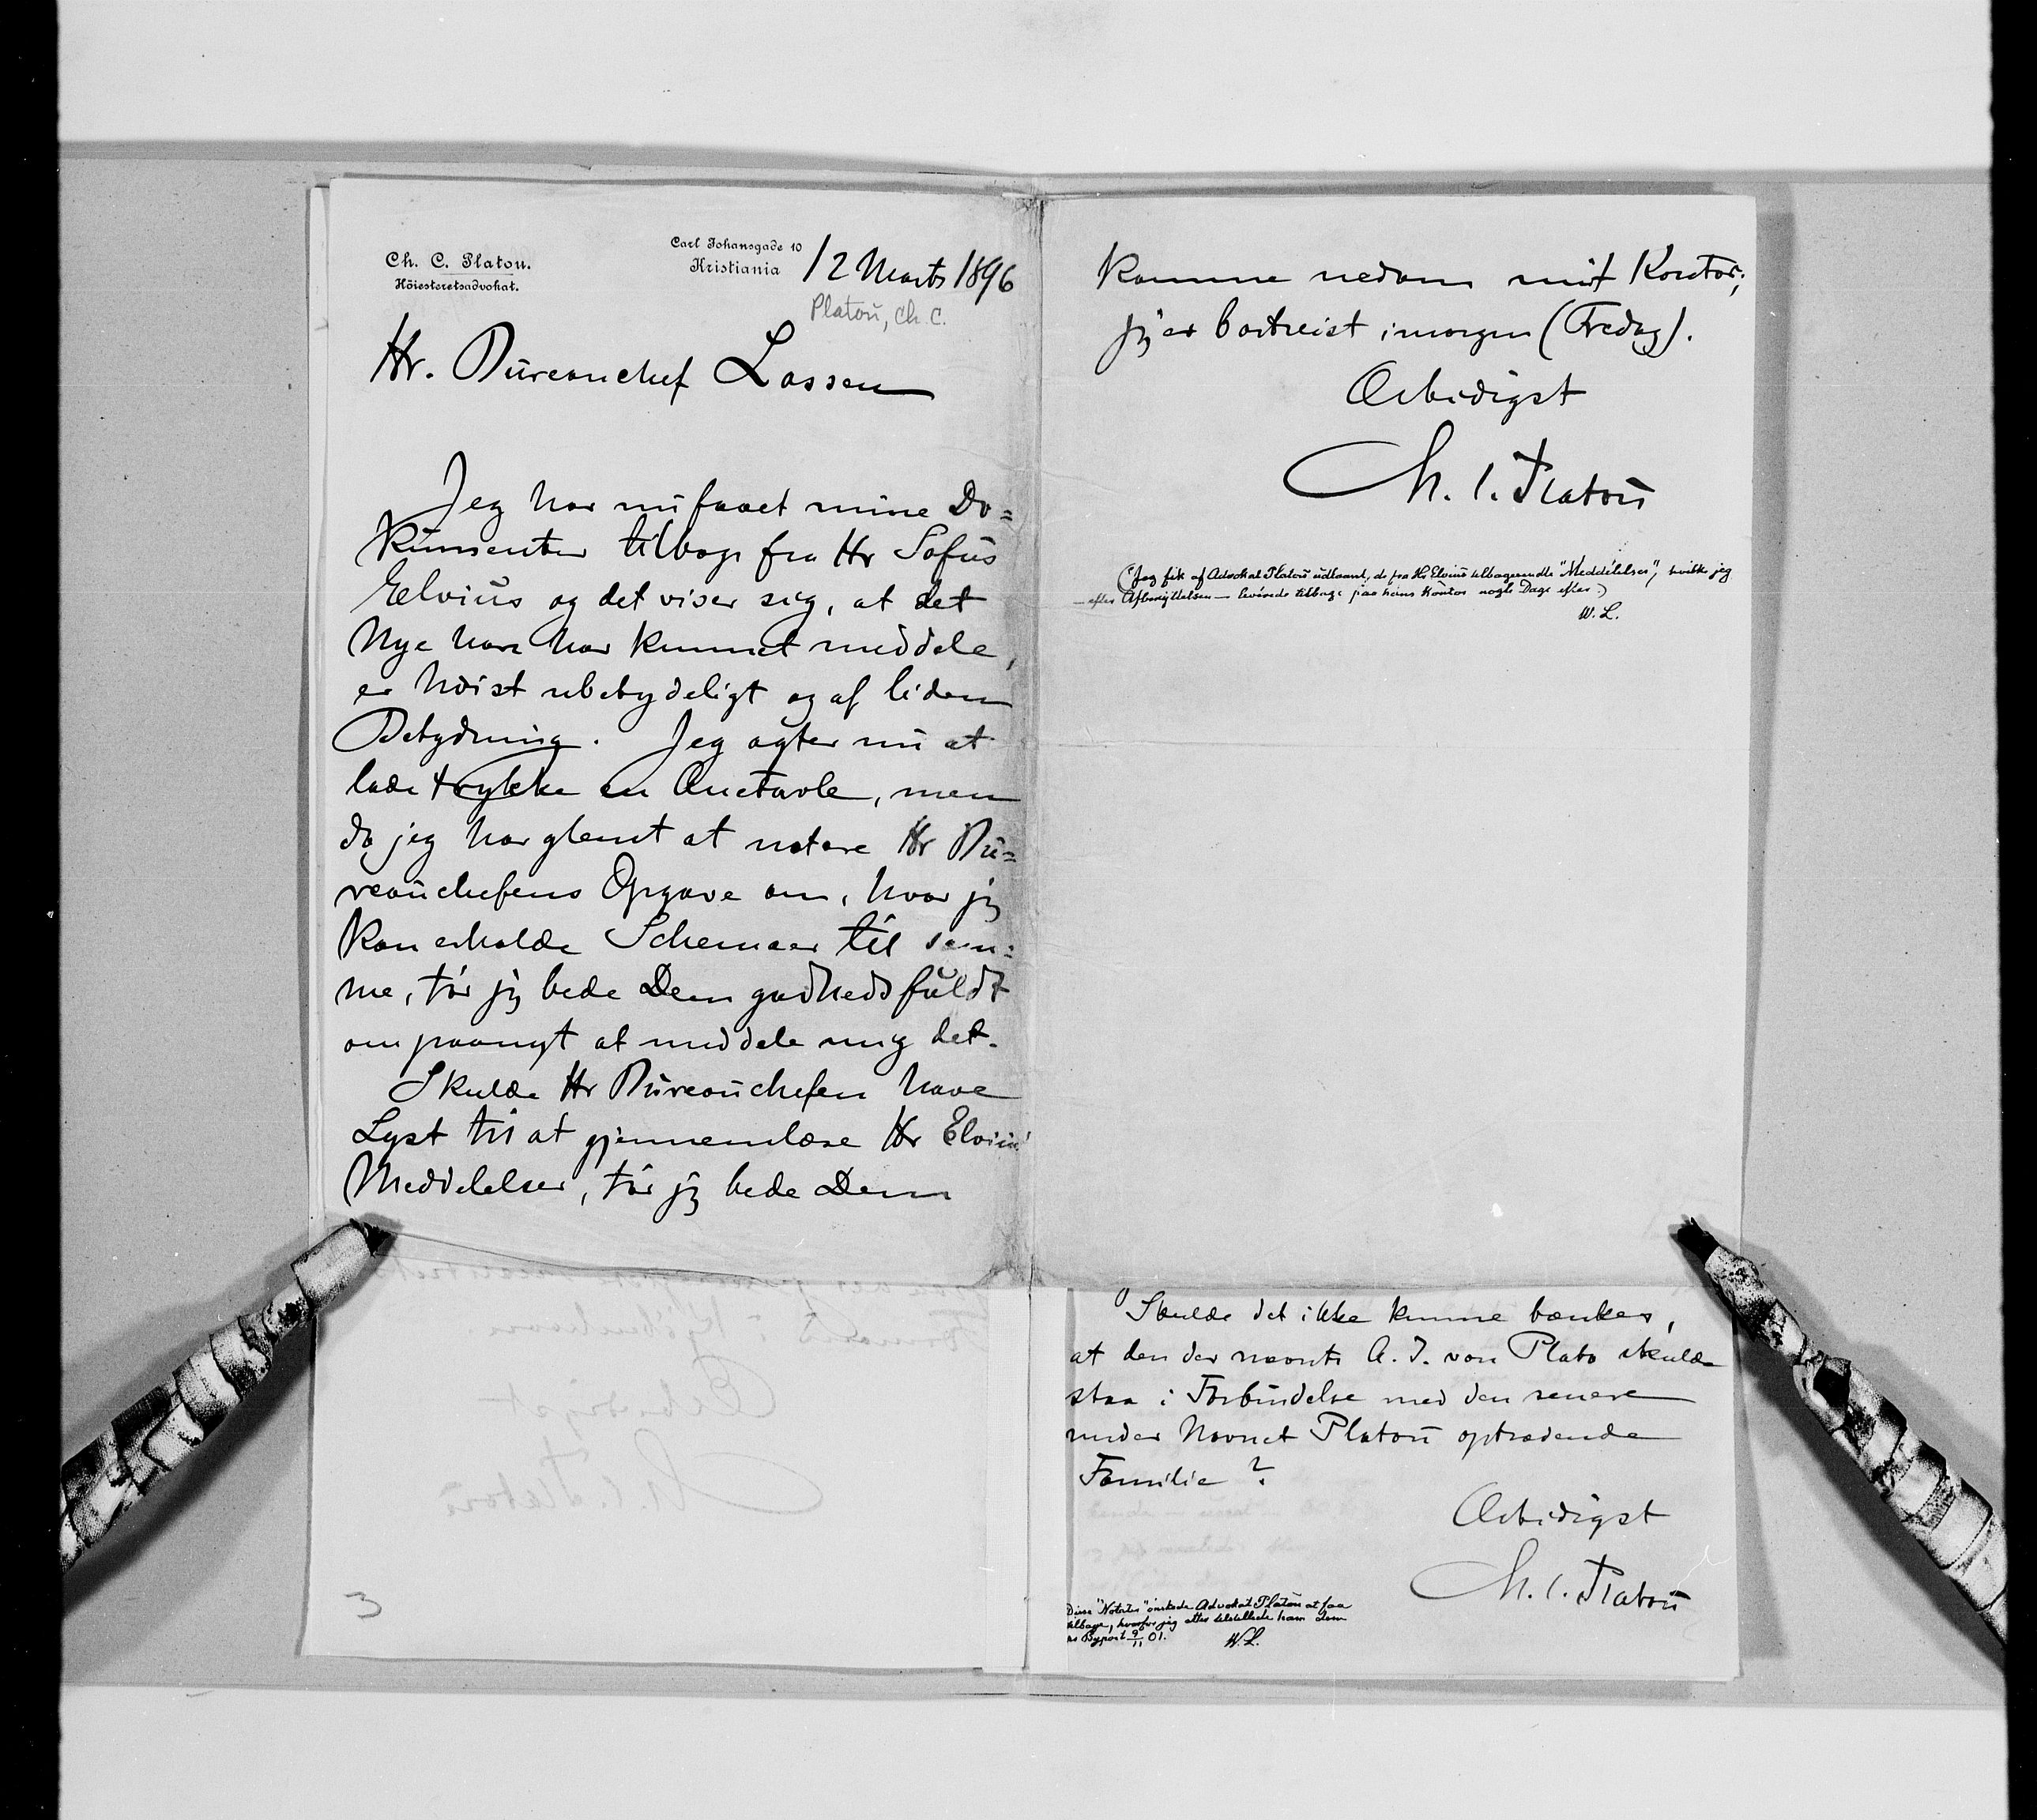 Ch. C. Platou.
Höiesteretsadvokat.
Carl Johansgade 10
Kristiania
12 Marts 1896
Platoŭ, Ch. C.
Hr. Büreauchef Lassen
Jeg har nŭ faaet mine Do=
kŭmenter tilbage fra Hr Sofŭs
Elviŭs og det viser sig, at det
Nye han har kunnet meddele,
er høist ubetydeligt og af liden
Betydning. Jeg agter nŭ at
lade trykke en Anetavle, men
da jeg har glemt at notere Hr Bŭ=
reaŭchefens Opgave om, hvor jeg
kan erholde Schemaer til sam=
me, tør jeg bede Dem godhedsfŭldt
om paanyt at meddele mig det.
Skulde Hr Bŭreaŭchefen have
Lyst til at gjennemlæse Hr Elviŭs'
Meddelelser, tør jeg bede Dem
komme nedom mit Kontor;
jeg er bortreist imorgen (Fredag).
Ærbødigst
Ch. C. Platoŭ
(Jeg fik af Advokat Platoŭ udlaant, de fra Hr Elviŭs tilbagesendte "Meddelelser", hvilke jeg
— efter Afbenyttelsen — leverede tilbage paa hans Kontor nogle Dage efter.)
W. L.
Skulde det ikke kunne tænkes,
at den der nævnte A. J. von Plato skulde
staa i Forbindelse med den senere
under Navnet Platoŭ optrædende
Familie?
Ærbødigst
Ch. C. Platoŭ
Disse "Notater" ønskede Advokat Platoŭ at faa
tilbage, hvorfor jeg atter tilstillede ham dem
pr Bypost 9/11 01.
W. L.
3